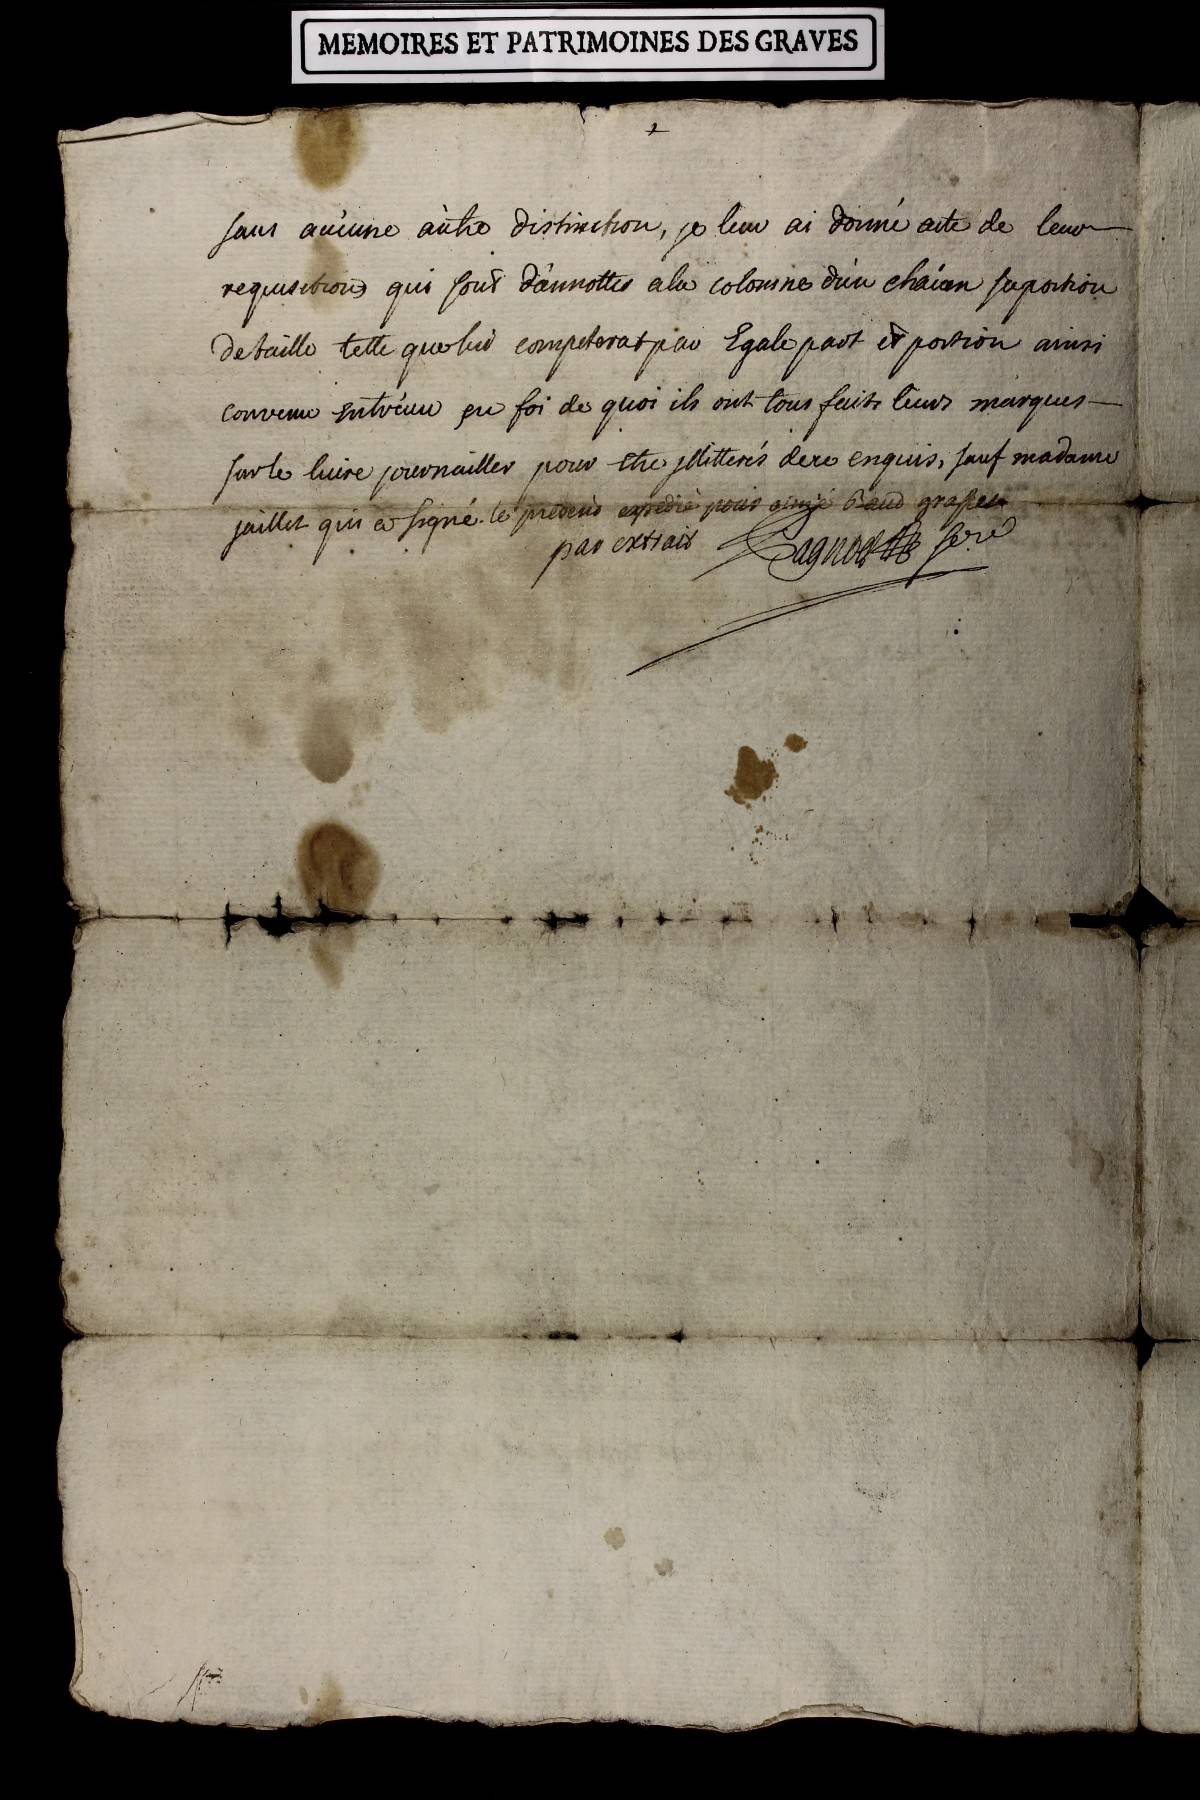 MEMOIRES ET PATRIMOINES DES GRAVES
2
sans aucune autre distinction, je leur ai donné acte de leur
requisitions qui sont d'annotter a la colomne d'un chaiun sa portion
de taille telle que lui competerat par Egale part et portion ainsi
convenu entreux en foi de quoi ils ont tous faits leurs marques
sur le luire journailler pour etre jllitterés de ce enquis, sauf madame
jaillet qui a signé. le présent expédié pour
par extrait